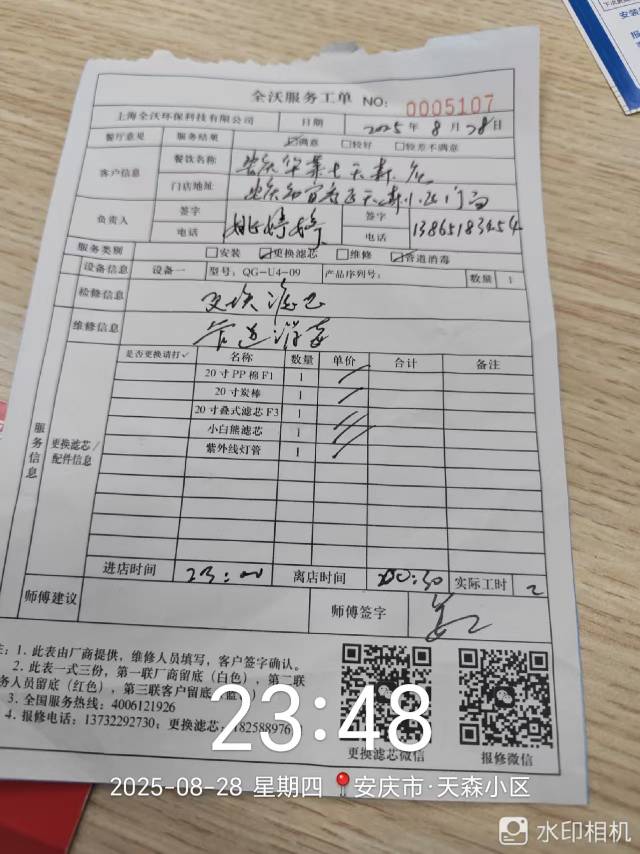 全沃服务工单 NO: 0005107
上海全沃环保科技有限公司 日期 2025年8月28日
餐厅意见 服务结果 ☑满意 □较好 □较差不满意
客户信息 餐饮名称 安庆华莱士天森店
门店地址 安庆 天森小区门面
负责人 签字 姚婷婷 签字
电话 电话 13865183254
服务类别 □安装 ☑更换滤芯 □维修 ☑管道消毒
设备信息 设备一 型号：QG-U4-09 产品序列号： 数量 1
检修信息 更换滤芯
维修信息 管道消毒
服务信息 更换滤芯/配件信息
是否更换请打✓ 名称 数量 单价 合计 备注
20寸PP棉F1 1
20寸炭棒 1
20寸叠式滤芯F3 1
小白熊滤芯 1
紫外线灯管 1
进店时间 23:00 离店时间 00:30 实际工时 2
师傅建议 师傅签字
注：1、此表由厂商提供，维修人员填写，客户签字确认。
2、此表一式三份，第一联厂商留底（白色），第二联
务人员留底（红色），第三联客户留底
3、全国服务热线：4006121926
4、报修电话：13732292730；更换滤芯
更换滤芯微信 报修微信
23:48
2025-08-28 星期四 📍安庆市·天森小区
水印相机
下次更
安装
报